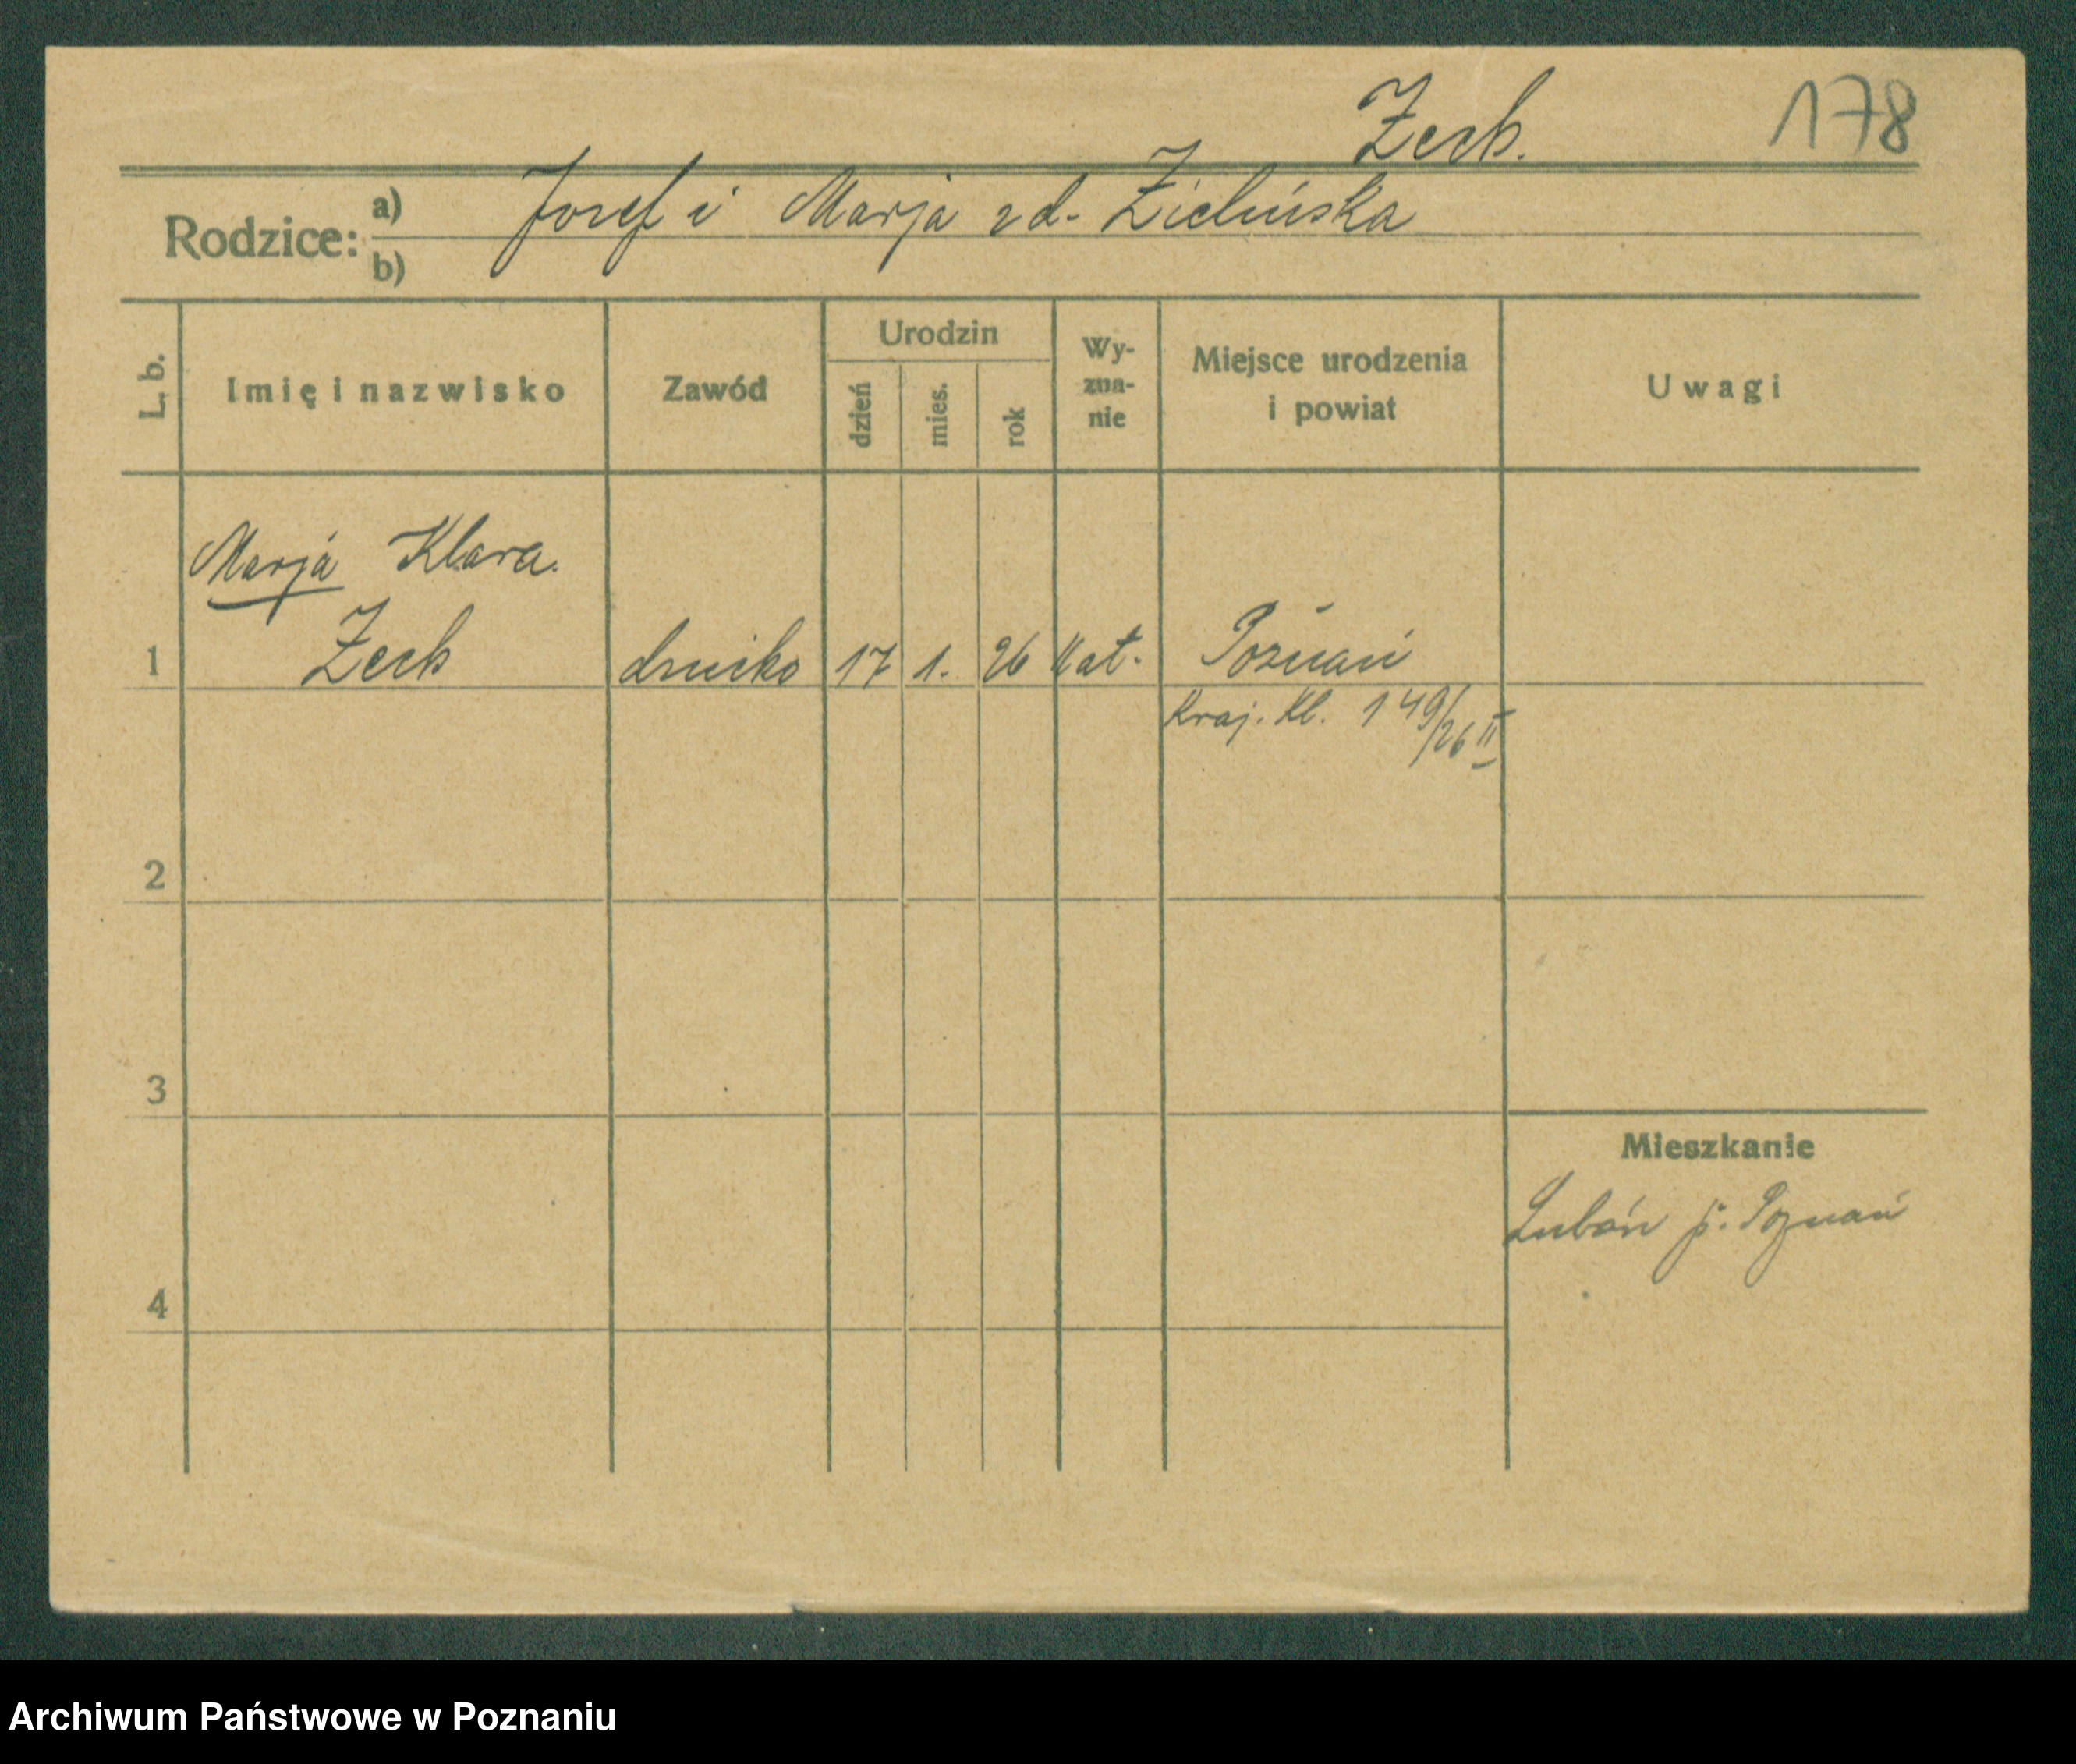 Zech.
178
Rodzice: a) Josef i Marja zd. Zielińska
b)
L. b. Imię i nazwisko Zawód Urodzin dzień mies. rok Wyznanie Miejsce urodzenia i powiat Uwagi
Marja Klara.
1 Zech dziecko 17 1. 26 kat. Poznań
Kraj. Kl. 149/26 II
2
3
Mieszkanie
Luboń p. Poznań
4
Archiwum Państwowe w Poznaniu